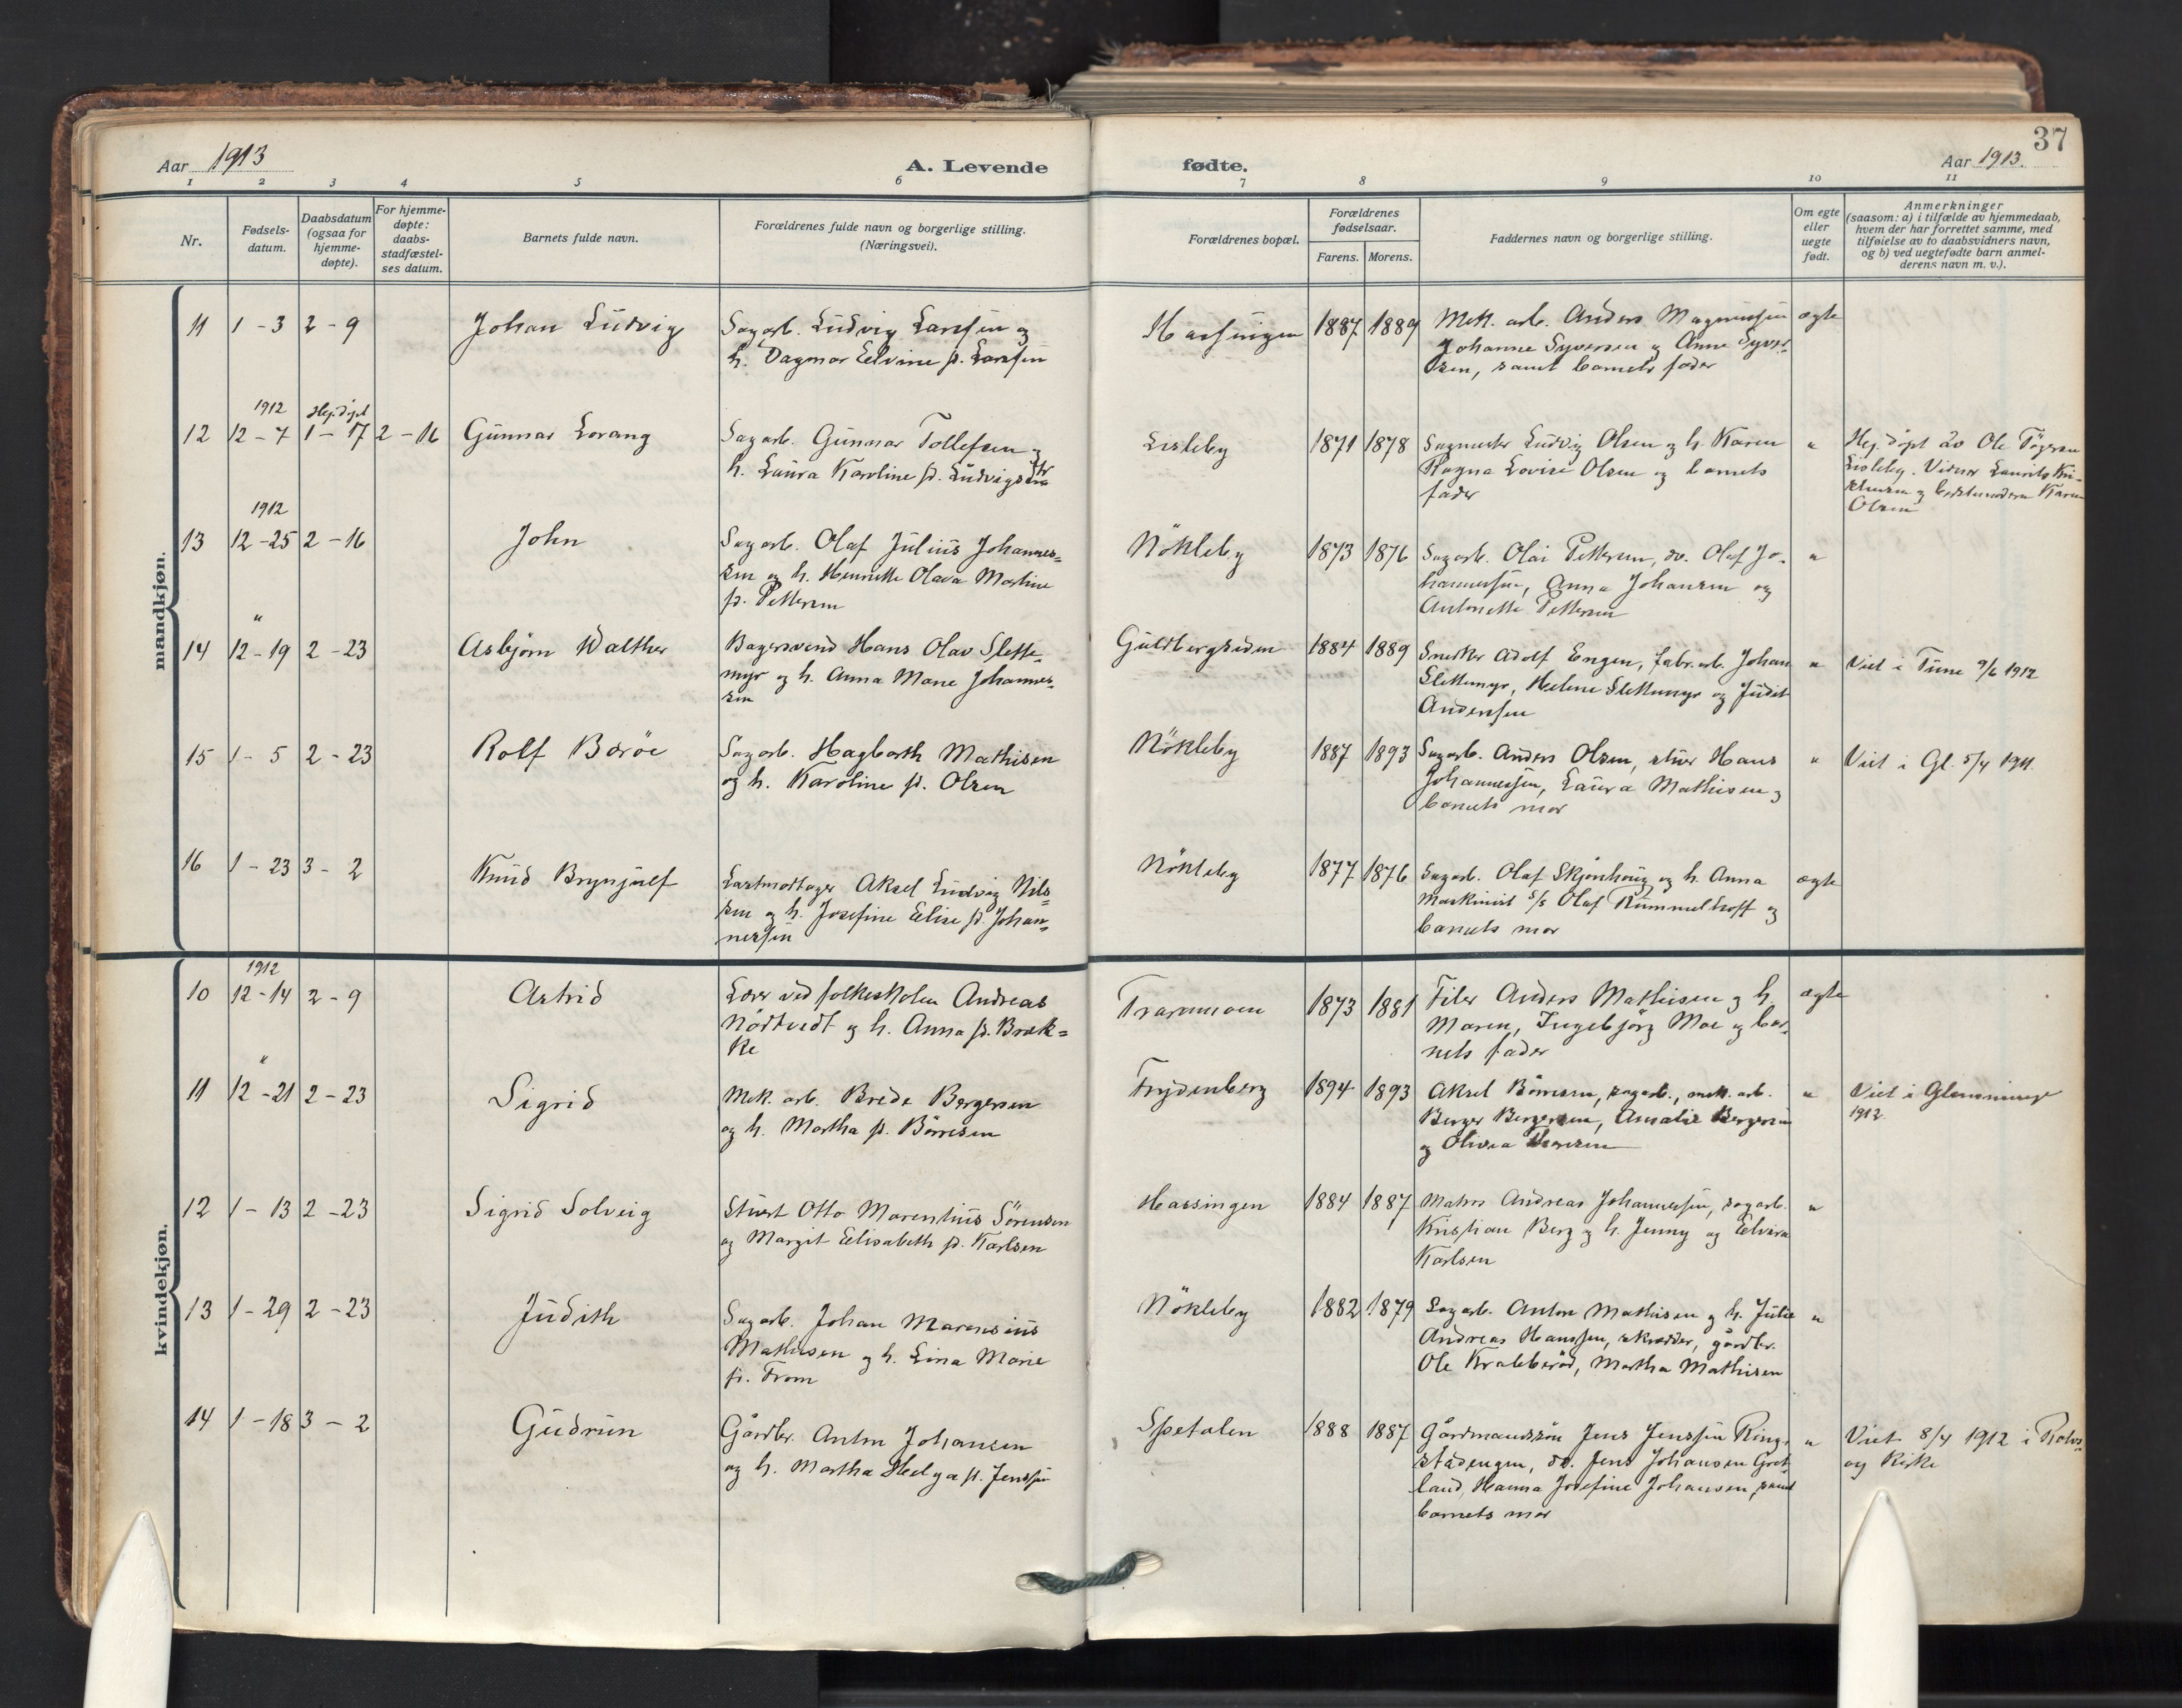 37
Aar 1913
A. Levende
fødte.
Aar 1913.
1 2 3 4 5 6 7 8 9 10 11
Nr.
Fødsels-
datum.
Daabsdatum
(ogsaa for
hjemme-
døpte).
For hjemme-
døpte:
daabs-
stadfæstel-
ses datum.
Barnets fulde navn.
Forældrenes fulde navn og borgerlige stilling.
(Næringsvei).
Forældrenes bopæl.
Forældrenes
fødselsaar.
Farens. Morens.
Faddernes navn og borgerlige stilling.
Om egte
eller
uegte
født.
Anmerkninger
(saasom: a) i tilfælde av hjemmedaab,
hvem der har forrettet samme, med
tilføielse av to daabsvidners navn,
og b) ved uegtefødte barn anmel-
derens navn m. v.).
mandkjøn.
11 1-3 2-9
Johan Ludvig
Sagarb. Ludvig Larsen og
h. Dagmar Elvine f. Larsen
Hassingen 1887 1889
Mek. arb. Anders Magnussen
Johanne Syversen og Anna Syver-
sen, samt barnets fader
ægte
12 1912 12-7 Hj.døpt 1-17 2-16
Gunnar Lorang
Sagarb. Gunnar Tollefsen og
h. Laura Karoline f. Ludvigsdtr
Lisleby 1871 1878
Sagmester Ludvig Olsen og h. Karen
Ragna Lovise Olsen og barnets
fader
"
Hj. døpt av Ole
Lisleby. Vidner Laurits Kri-
og Karen
Olsen
13 1912 12-25 2-16
John
Sagarb. Olaf Julius Johannes-
sen og h. Henriette Olava Martine
f. Pettersen
Nökleby 1873 1876
Sagarb. Olai Pettersen, do. Olaf Jo-
hannessen, Anna Johansen og
Antonette Pettersen
"
14 " 12-19 2-23
Asbjørn Walther
Bagersvend Hans Olav Slette-
myr og h. Anna Marie Johannes-
sen
Guldbergsiden 1884 1889
Snekker Adolf Engen, fabr. arb. Johan
Slettemyr, Helene Slettemyr og Judit
Andersen
"
Viet i Tune 9/6 1912
15 1-5 2-23
Rolf Barøe
Sagarb. Hagbarth Mathisen
og h. Karoline f. Olsen
Nökleby 1887 1893
Sagarb. Anders Olsen, stuer Hans
Johannessen, Laura Mathisen og
barnets mor
"
Viet i Gl. 5/4 1911.
16 1-23 3-2
Knud Brynjulf
Lastmottager Aksel Ludvig Nils-
sen og h. Josefine Elise f. Johan-
nessen
Nökleby 1877 1876
Sagarb. Olaf Skjönhaug og h. Anna
Maskinist s/s Olaf Rummelhoff og
barnets mor
ægte
kvindekjøn.
10 1912 12-14 2-9
Astrid
Lærer ved folkeskolen Andreas
Nödtvedt og h. Anna f. Bræk-
ke
Traramoen 1873 1881
Filer Anders Mathisen og h.
Maren, Ingebjörg Moe og bar-
nets fader
ægte
11 " 12-21 2-23
Sigrid
Mek. arb. Brede Bergersen
og h. Martha f. Börresen
Frydenberg 1894 1893
Aksel Börresen, sagarb., mek. arb.
Berger Bergersen, Amalie Bergersen
og Olivia
"
Viet i Glemminge
1912.
12 1-13 2-23
Sigrid Solveig
Stuert Otto Marentius Sörensen
og Margit Elisabeth f. Karlsen
Hassingen 1884 1887
Matros Andreas Johannessen, sagarb.
Kristian Berg og h. Jenny og Elvira
Karlsen
"
13 1-29 2-23
Judith
Sagarb. Johan Marensius
Mathisen og h. Lina Marie
f. From
Nökleby 1882 1879
Sagarb. Anton Mathisen og h. Julie
Andreas Hanssen, skrædder, gårdbr.
Ole Krabberöd, Martha Mathisen
"
14 1-18 3-2
Gudrun
Gårdbr. Anton Johansen
og h. Martha Helga f. Jenssen
Spetalen 1888 1887
Gårdmandssön Jens Jenssen Ring-
stadengen, do. Jens Johansen Græt-
land, Hanna Josefine Johansen samt
barnets mor
"
Viet 8/4 1912 i Rolvs-
øy Kirke